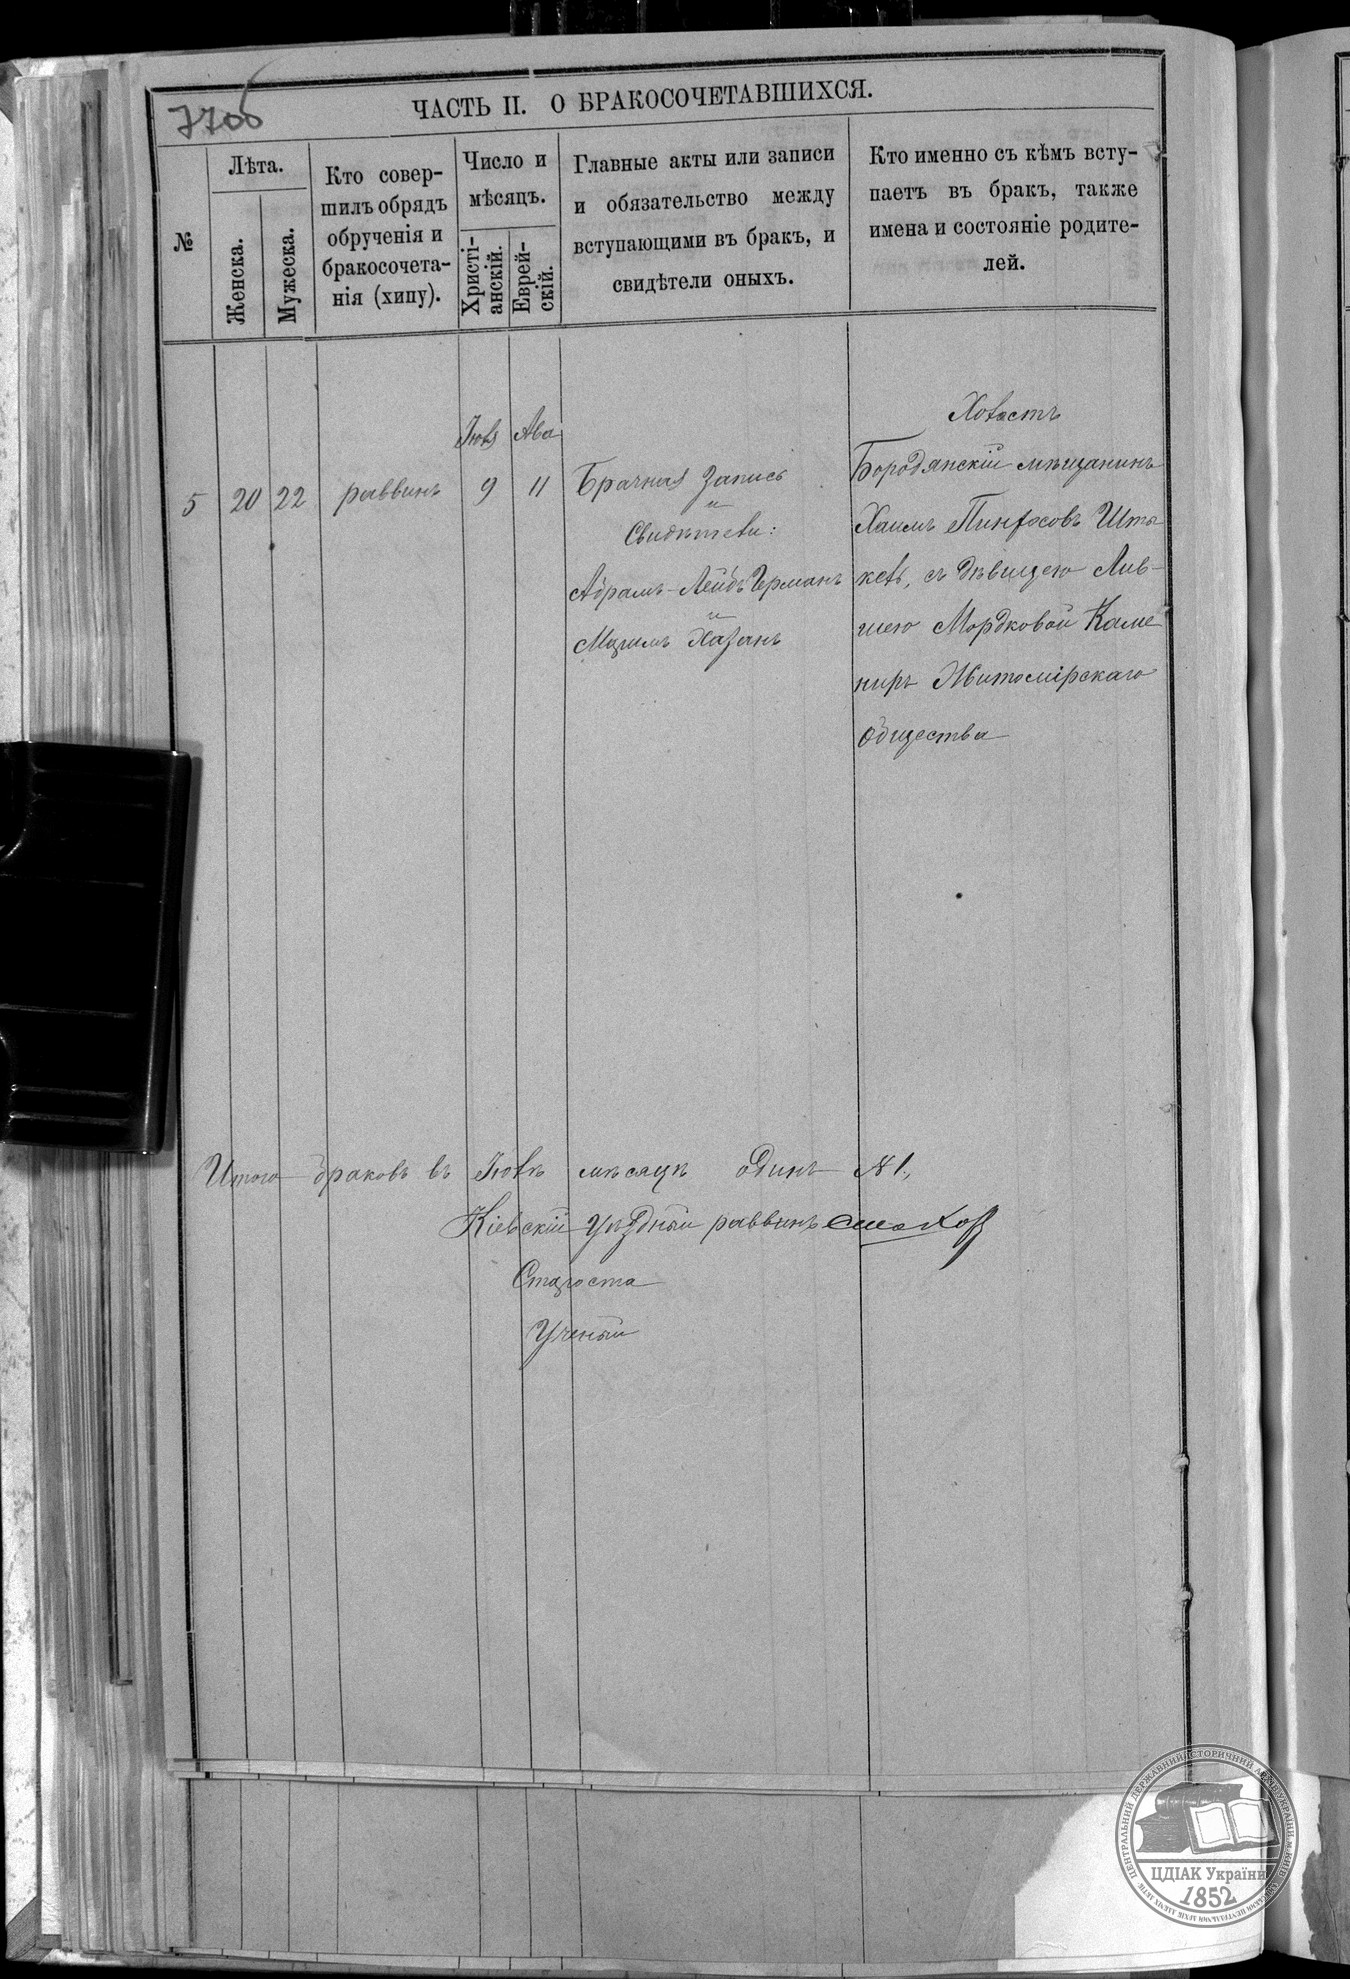 ЧАСТЬ II. О БРАКОСОЧЕТАВШИХСЯ.
№
Лѣта.
Женска.
Мужеска.
Кто совер-
шилъ обрядъ
обрученія и
бракосочета-
нія (хипу).
Число и
мѣсяцъ.
Христі-
анскій.
Еврей-
скій.
Главные акты или записи
и обязательство между
вступающими въ бракъ, и
свидѣтели оныхъ.
Кто именно съ кѣмъ всту-
паетъ въ бракъ, также
имена и состояніе родите-
лей.
5
20
22
раввинъ
Іюля
9
Ава
11
Брачная запись
и
Свидѣтели:
Абрамъ-Лейбъ Германъ
и
Хазанъ
Холостъ
Бородянскій мѣщанинъ
Хаимъ Пинхосовъ Шты
кель, съ дѣвицею Лив-
шею Мордковой Каме
ниръ Житомірскаго
общества
Итого браковъ въ Іюлѣ мѣсяцѣ одинъ №1,
Кіевскій уѣздный раввинъ
Староста
Ученый
ЦЕНТРАЛЬНИЙ ДЕРЖАВНИЙ ІСТОРИЧНИЙ АРХІВ УКРАЇНИ, м. КИЇВ
ЦДІАК України
1852